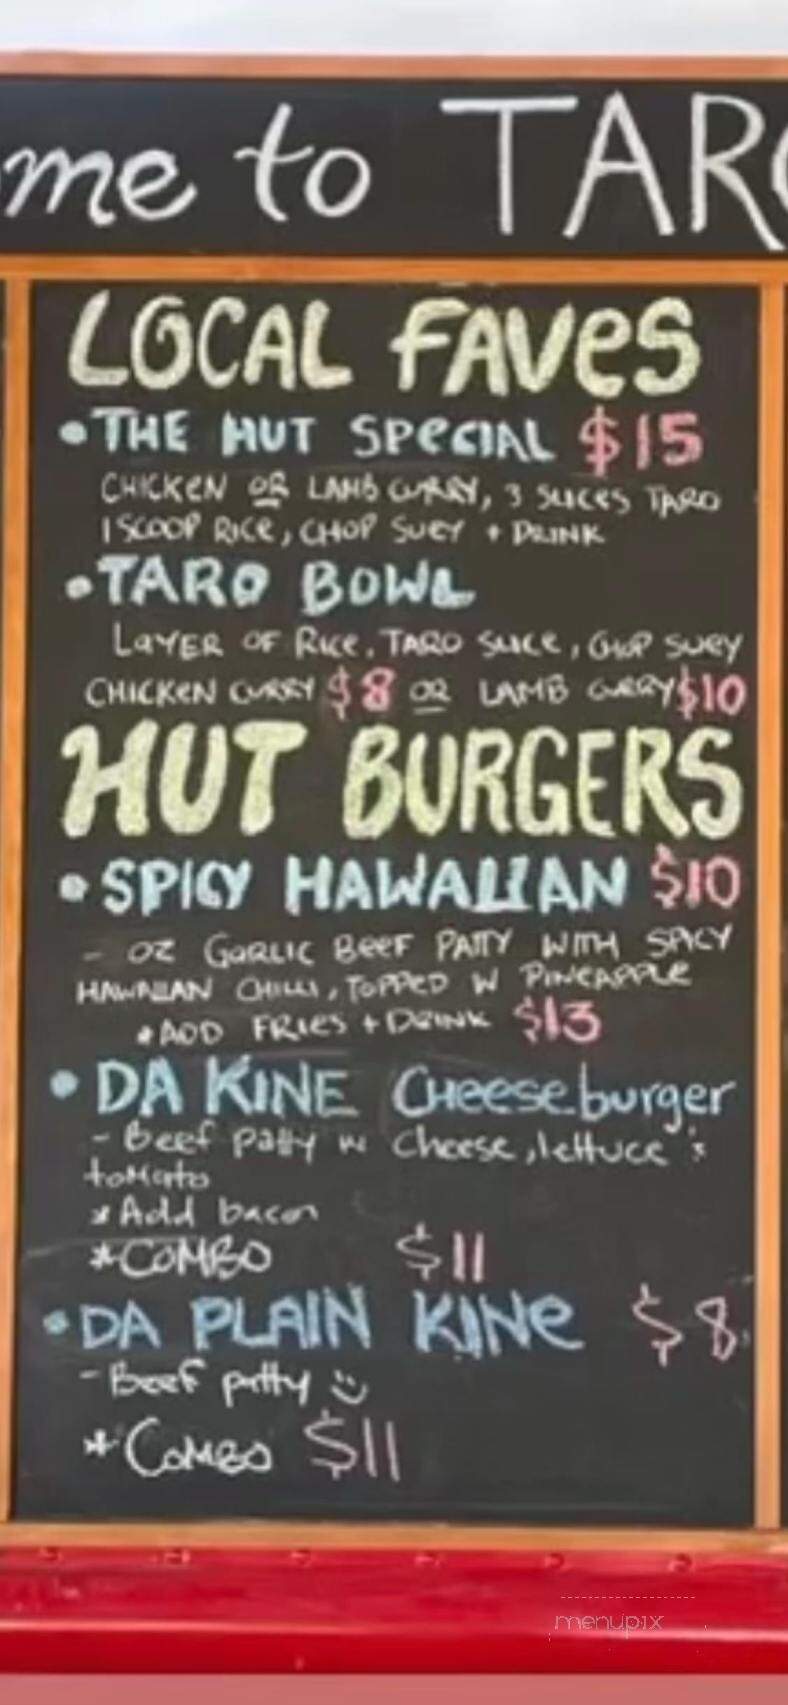 me to TARO
LOCAL FAVES
• THE HUT SPECIAL $15
CHICKEN OR LAMB CURRY, 3 SLICES TARO
1 SCOOP RICE, CHOP SUEY + DRINK
• TARO BOWL
LAYER OF RICE, TARO SLICE, CHOP SUEY
CHICKEN CURRY $8 OR LAMB CURRY $10
HUT BURGERS
• SPICY HAWAIIAN $10
- OZ GARLIC BEEF PATTY WITH SPICY
HAWAIIAN CHILLI, TOPPED W PINEAPPLE
* ADD FRIES + DRINK $13
• DA KINE Cheeseburger
- Beef patty w cheese, lettuce &
tomato
* Add bacon
* COMBO $11
• DA PLAIN KINE $8
- Beef patty
* COMBO $11
menupix